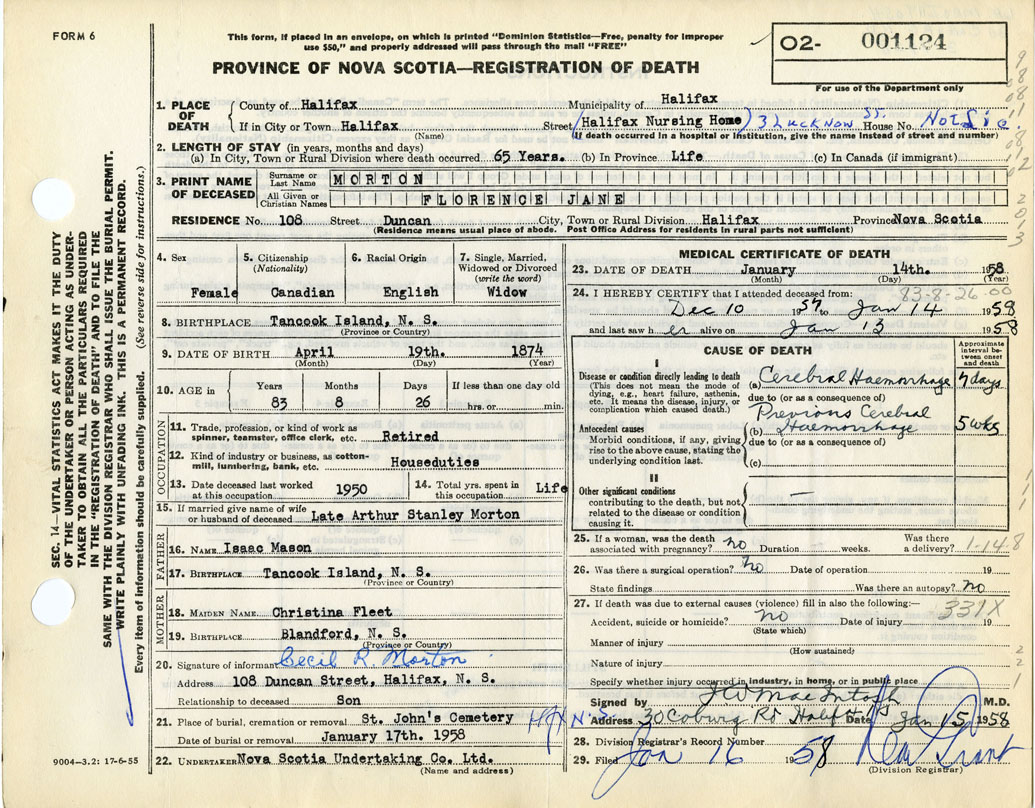 FORM 6
This form, if placed in an envelope, on which is printed "Dominion Statistics—Free, penalty for improper
use $50," and properly addressed will pass through the mail "FREE"
02- 001124
For use of the Department only
PROVINCE OF NOVA SCOTIA—REGISTRATION OF DEATH
1. PLACE OF DEATH
County of Halifax Municipality of Halifax
If in City or Town Halifax Street (Halifax Nursing Home) 3 Lucknow St. House No. Not Lic.
(Name) (If death occurred in a hospital or institution, give the name instead of street and number)
2. LENGTH OF STAY (in years, months and days)
(a) In City, Town or Rural Division where death occurred 65 Years. (b) In Province Life (c) In Canada (if immigrant)
3. PRINT NAME OF DECEASED
Surname or Last Name MORTON
All Given or Christian Names FLORENCE JANE
RESIDENCE No. 108 Street Duncan City, Town or Rural Division Halifax Province Nova Scotia
(Residence means usual place of abode. Post Office Address for residents in rural parts not sufficient)
4. Sex Female
5. Citizenship (Nationality) Canadian
6. Racial Origin English
7. Single, Married, Widowed or Divorced (write the word) Widow
8. BIRTHPLACE Tancook Island, N. S.
(Province or Country)
9. DATE OF BIRTH April 19th. 1874
(Month) (Day) (Year)
10. AGE in Years 83 Months 8 Days 26 If less than one day old hrs. or min.
OCCUPATION
11. Trade, profession or kind of work as spinner, teamster, office clerk, etc. Retired
12. Kind of industry or business, as cotton-mill, lumbering, bank, etc. Houseduties
13. Date deceased last worked at this occupation 1950
14. Total yrs. spent in this occupation Life
15. If married give name of wife or husband of deceased Late Arthur Stanley Morton
FATHER
16. NAME Isaac Mason
17. BIRTHPLACE Tancook Island, N. S.
(Province or Country)
MOTHER
18. MAIDEN NAME Christina Fleet
19. BIRTHPLACE Blandford, N. S.
(Province or Country)
20. Signature of informant Cecil R. Morton
Address 108 Duncan Street, Halifax, N. S.
Relationship to deceased Son
21. Place of burial, cremation or removal St. John's Cemetery Hfx N.S
Date of burial or removal January 17th. 1958
22. UNDERTAKER Nova Scotia Undertaking Co. Ltd.
(Name and address)
MEDICAL CERTIFICATE OF DEATH
23. DATE OF DEATH January 14th. 1958
(Month) (Day) (Year)
83-8-26 .00
24. I HEREBY CERTIFY that I attended deceased from:
Dec 10 1957 to Jan 14 1958
and last saw h er alive on Jan 13 1958
CAUSE OF DEATH
Approximate interval between onset and death
I
Disease or condition directly leading to death
(This does not mean the mode of dying, e.g., heart failure, asthenia, etc. It means the disease, injury, or complication which caused death.)
(a) Cerebral Haemorrhage 7 days
due to (or as a consequence of)
Antecedent causes
Morbid conditions, if any, giving rise to the above cause, stating the underlying condition last.
(b) Previous Cerebral Haemorrhage 5 wks
due to (or as a consequence of)
(c)
II
Other significant conditions
contributing to the death, but not related to the disease or condition causing it. —
25. If a woman, was the death associated with pregnancy? no Duration weeks. Was there a delivery? 1-14-8
26. Was there a surgical operation? no Date of operation 19
State findings Was there an autopsy? no
27. If death was due to external causes (violence) fill in also the following:— 331X
Accident, suicide or homicide? no Date of injury 19
(State which)
Manner of injury
(How sustained)
Nature of injury
Specify whether injury occurred in industry, in home, or in public place
Signed by J W MacIntosh M.D.
Address 30 Coburg Rd Halfx N S Date Jan 15 1958
28. Division Registrar's Record Number
29. Filed Jan 16 1958
(Division Registrar)
SEC. 14—VITAL STATISTICS ACT MAKES IT THE DUTY
OF THE UNDERTAKER OR PERSON ACTING AS UNDER-
TAKER TO OBTAIN ALL THE PARTICULARS REQUIRED
IN THE "REGISTRATION OF DEATH" AND TO FILE THE
SAME WITH THE DIVISION REGISTRAR WHO SHALL ISSUE THE BURIAL PERMIT.
WRITE PLAINLY WITH UNFADING INK. THIS IS A PERMANENT RECORD.
Every item of information should be carefully supplied. (See reverse side for instructions.)
9004—3.2: 17-6-55